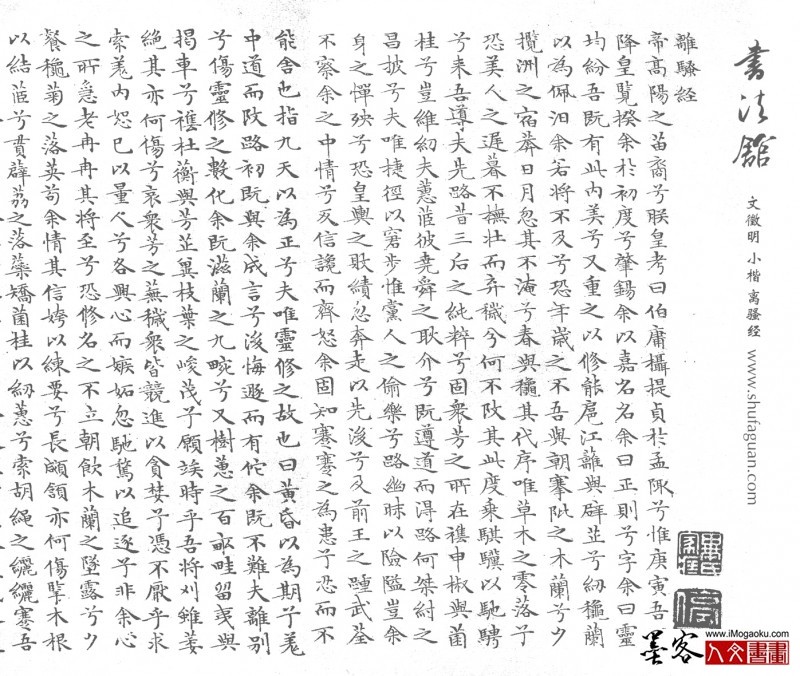 書法館
文徵明 小楷 离骚经 www.shufaguan.com
離騷經
帝高陽之苗裔兮朕皇考曰伯庸攝提貞於孟陬兮惟庚寅吾
降皇覽揆余於初度兮肇錫余以嘉名名余曰正則兮字余曰靈
均紛吾既有此內美兮又重之以修能扈江離與辟芷兮紉穐蘭
以為佩汨余若將不及兮恐年歲之不吾與朝搴阰之木蘭兮夕
攬洲之宿莽日月忽其不淹兮春與穐其代序唯草木之零落兮
恐美人之遲暮不撫壯而弃穢兮何不改其此度乘騏驥以馳騁
兮来吾導夫先路昔三后之純粹兮固衆芳之所在襍申椒與菌
桂兮豈維紉夫蕙茝彼堯舜之耿介兮既遵道而得路何桀紂之
昌披兮夫唯捷徑以窘步惟黨人之偷樂兮路幽昧以險隘豈余
身之憚殃兮恐皇輿之敗績忽奔走以先後兮及前王之踵武荃
不察余之中情兮反信讒而齌怒余固知謇謇之為患兮忍而不
能舍也指九天以為正兮夫唯靈修之故也曰黃昏以為期兮羌
中道而改路初既與余成言兮後悔遯而有佗余既不難夫離別
兮傷靈修之數化余既滋蘭之九畹兮又樹蕙之百畝畦留夷與
揭車兮襍杜蘅與芳芷冀枝葉之峻茂兮願竢時乎吾將刈雖萎
絕其亦何傷兮哀衆芳之蕪穢衆皆競進以貪婪兮憑不厭乎求
索羌內恕己以量人兮各興心而嫉妬忽馳騖以追逐兮非余心
之所急老冉冉其將至兮恐修名之不立朝飲木蘭之墜露兮夕
餐穐菊之落英苟余情其信姱以練要兮長顑頷亦何傷擥木根
以結茝兮貫薜荔之落蘂矯菌桂以紉蕙兮索胡繩之纚纚謇吾
www.iMogaoku.com
墨客人文書畫